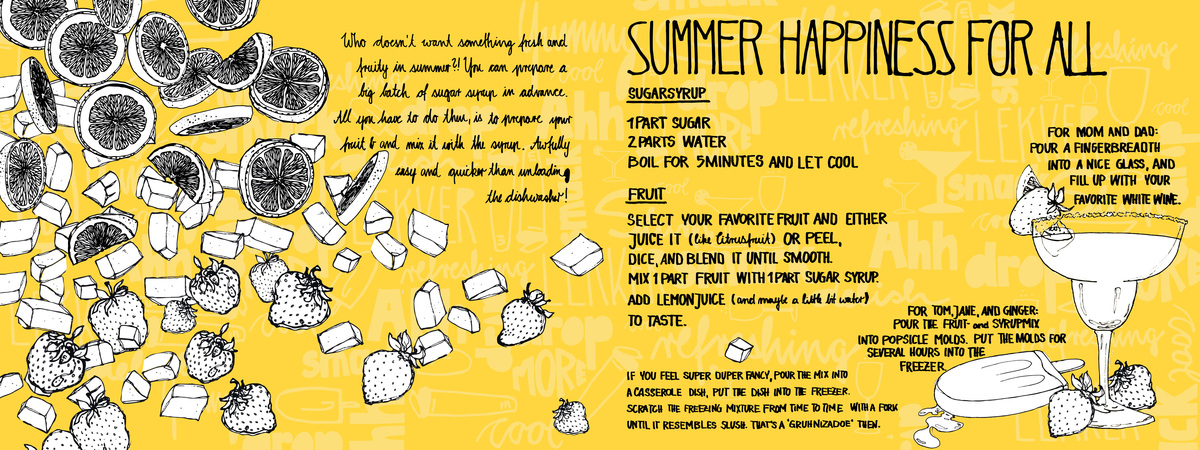 Who doesn't want something fresh and
fruity in summer?! You can prepare a
big batch of sugar syrup in advance.
All you have to do then, is to prepare your
fruit & and mix it with the syrup. Awfully
easy and quicker than unloading
the dishwasher!
SUMMER HAPPINESS FOR ALL
SUGARSYRUP
1 PART SUGAR
2 PARTS WATER
BOIL FOR 5 MINUTES AND LET COOL
FRUIT
SELECT YOUR FAVORITE FRUIT AND EITHER
JUICE IT (like citrusfruit) OR PEEL,
DICE, AND BLEND IT UNTIL SMOOTH.
MIX 1 PART FRUIT WITH 1 PART SUGAR SYRUP.
ADD LEMONJUICE (and maybe a little bit water)
TO TASTE.
IF YOU FEEL SUPER DUPER FANCY, POUR THE MIX INTO
A CASSEROLE DISH, PUT THE DISH INTO THE FREEZER.
SCRATCH THE FREEZING MIXTURE FROM TIME TO TIME WITH A FORK
UNTIL IT RESEMBLES SLUSH. THAT'S A 'GRUHNIZADOE' THEN.
FOR MOM AND DAD:
POUR A FINGERBREADTH
INTO A NICE GLASS, AND
FILL UP WITH YOUR
FAVORITE WHITE WINE.
FOR TOM, JANE, AND GINGER:
POUR THE FRUIT- and SYRUPMIX
INTO POPSICLE MOLDS. PUT THE MOLDS FOR
SEVERAL HOURS INTO THE
FREEZER.